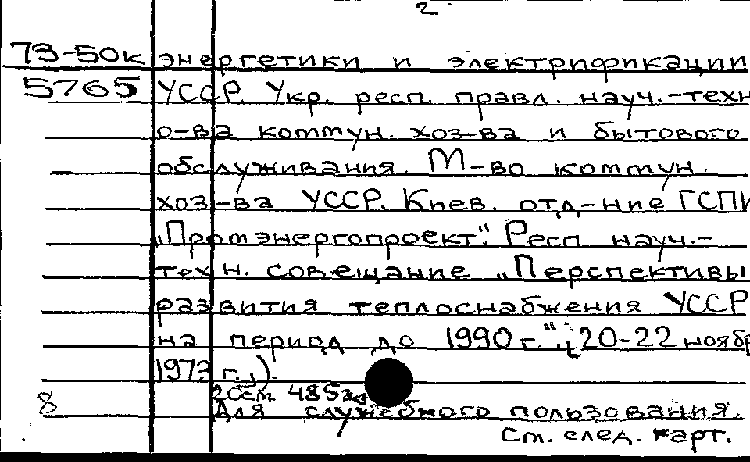 2
73-50к энергетики и электрификации
5765 УССР. Укр. респ. правл. науч.-техн
о-ва коммун. хоз-ва и бытового
обслуживания. М-во коммун.
хоз-ва УССР. Киев. отд-ние ГСПИ
„Промэнергопроект". Респ. науч.-
техн. совещание „Перспективы
развития теплоснабжения УССР
на период до 1990 г." 20-22 ноябр
197 г.).
485
8 Для служебного пользования.
См. след. карт.